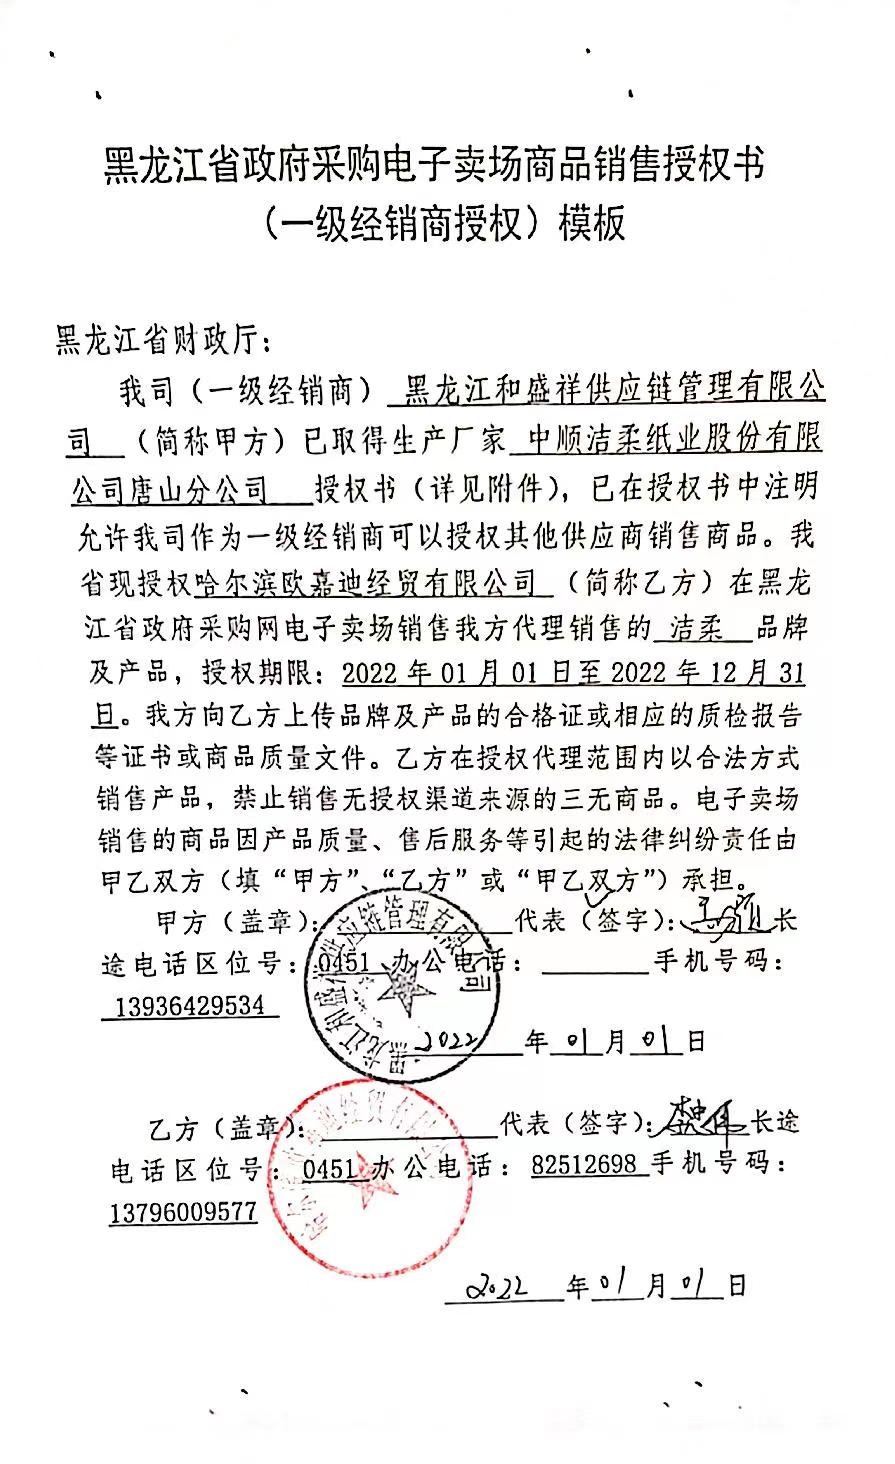 黑龙江省政府采购电子卖场商品销售授权书
（一级经销商授权）模板
黑龙江省财政厅：
我司（一级经销商）黑龙江和盛祥供应链管理有限公
司（简称甲方）已取得生产厂家 中顺洁柔纸业股份有限
公司唐山分公司 授权书（详见附件），已在授权书中注明
允许我司作为一级经销商可以授权其他供应商销售商品。我
省现授权哈尔滨欧嘉迪经贸有限公司（简称乙方）在黑龙
江省政府采购网电子卖场销售我方代理销售的 洁柔 品牌
及产品，授权期限：2022年01月01日至2022年12月31
日。我方向乙方上传品牌及产品的合格证或相应的质检报告
等证书或商品质量文件。乙方在授权代理范围内以合法方式
销售产品，禁止销售无授权渠道来源的三无商品。电子卖场
销售的商品因产品质量、售后服务等引起的法律纠纷责任由
甲乙双方（填“甲方”、“乙方”或“甲乙双方”）承担。
甲方（盖章）：代表（签字）：长
途电话区位号：0451 办公电话：手机号码：
13936429534
黑龙江和盛祥供应链管理有限公司
2022年01月01日
乙方（盖章）：代表（签字）：长途
电话区位号：0451办公电话：82512698手机号码：
13796009577
2022年01月01日